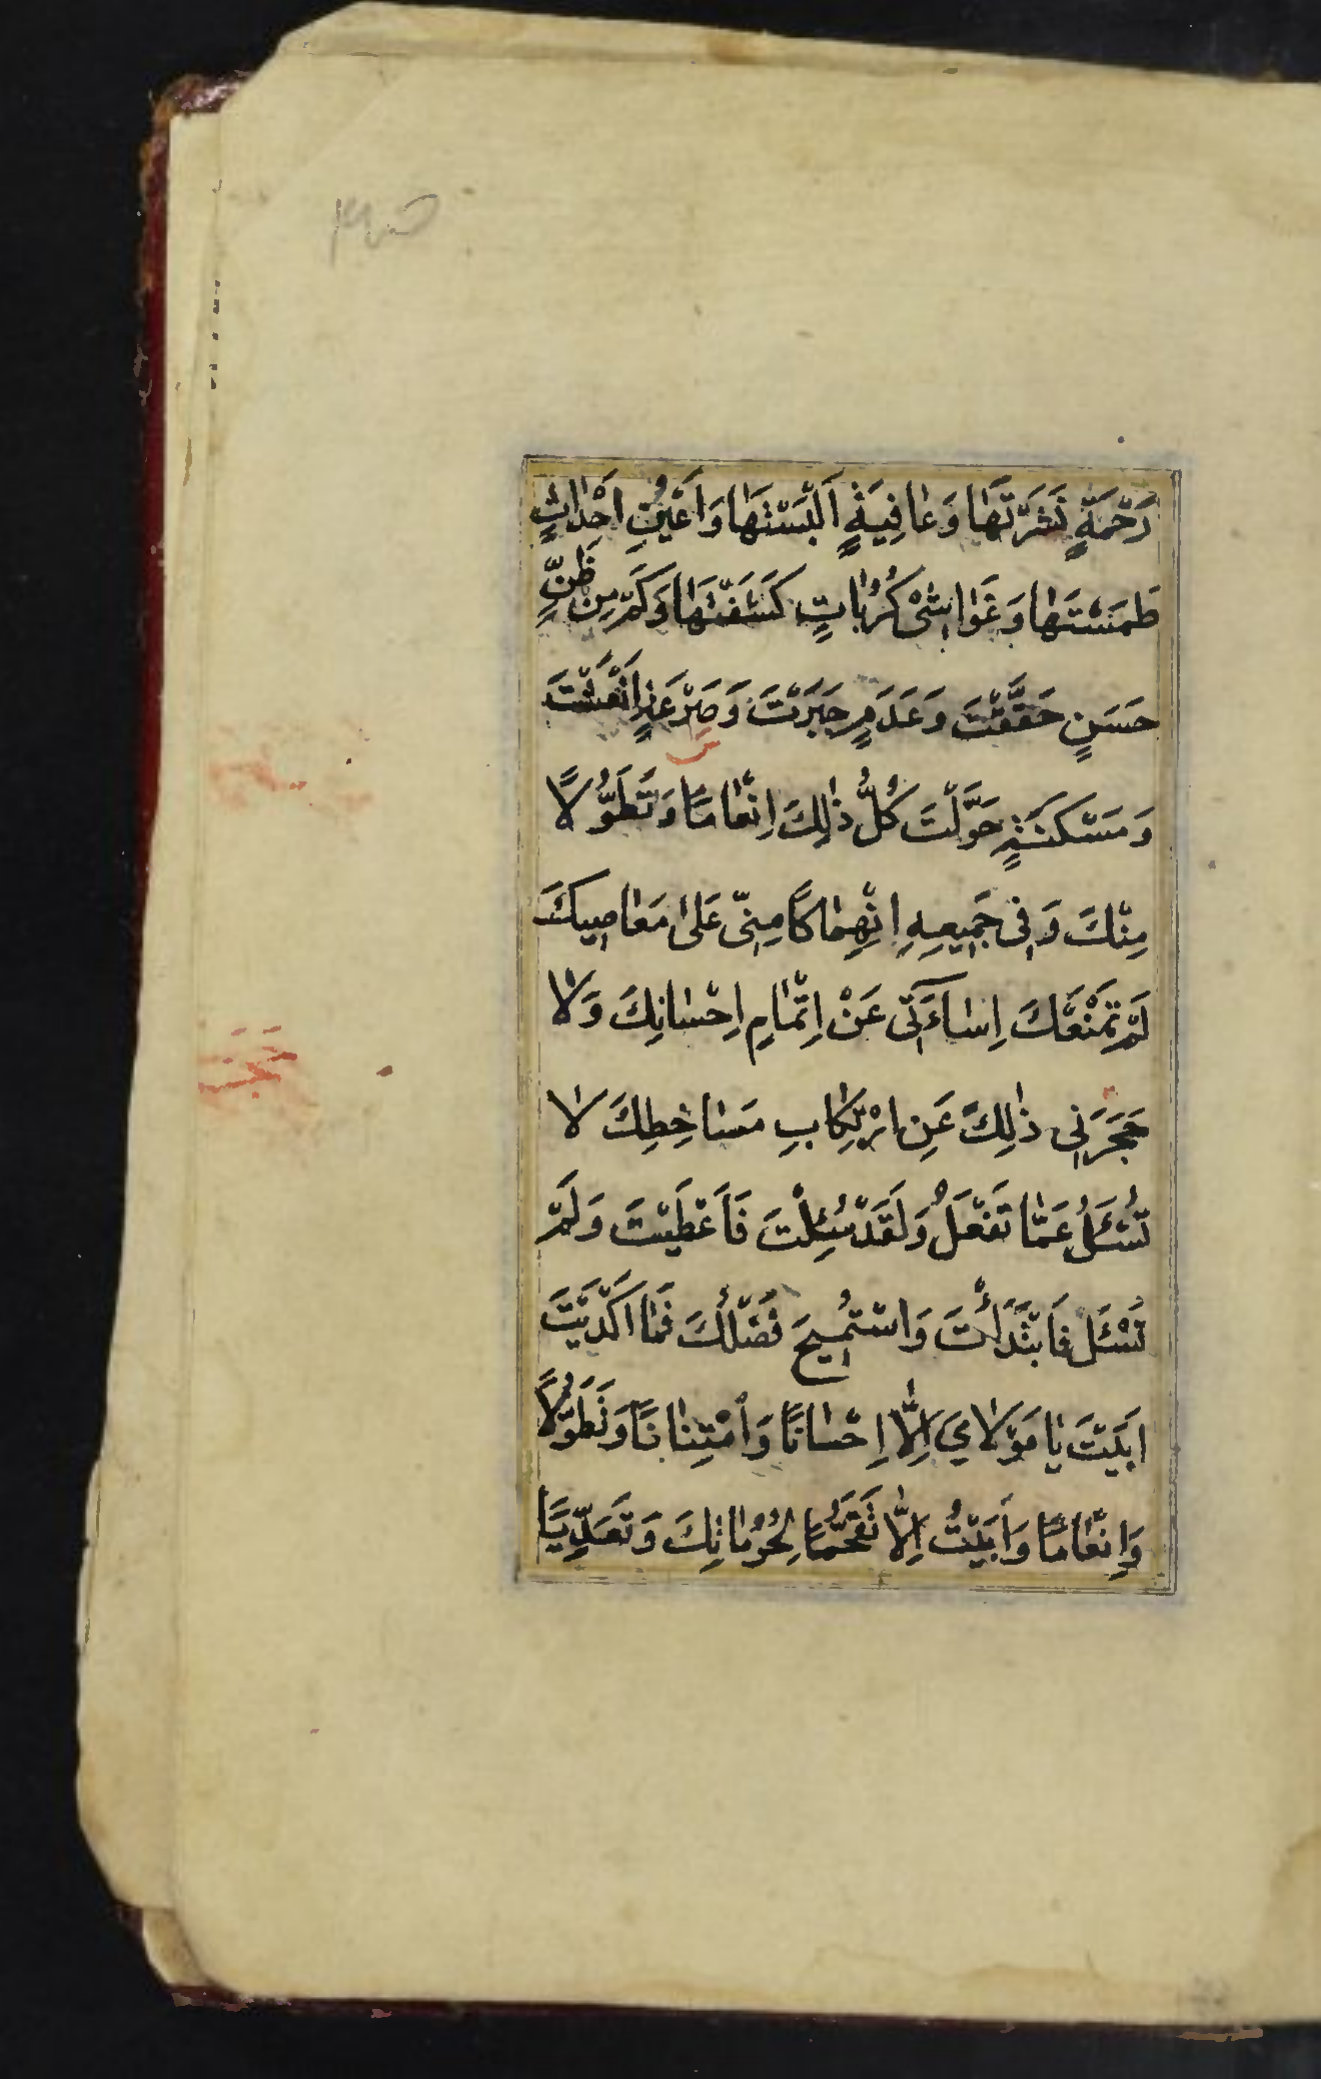 رَحْمَةٍ نَشَرْتَهَا وَعَافِيَةٍ اَلْبَسْتَهَا وَاَعْيُنِ اَحْدَاثٍ
طَمَسْتَهَا وَغَوَاشِىْ كُرُبَاتٍ كَشَفْتَهَا وَكَمْ مِنْ ظَنٍّ
حَسَنٍ حَقَّقْتَ وَعَدَمٍ جَبَرْتَ وَصَرْعَةٍ اَنْعَشْتَ
وَمَسْكَنَةٍ حَوَّلْتَ كُلُّ ذٰلِكَ اِنْعَامًا وَتَطَوُّلًا
مِنْكَ وَفِى جَمِيعِهِ اِنْهِمَاكًا مِنِّى عَلٰى مَعَاصِيكَ
لَمْ تَمْنَعْكَ اِسَاءَتِى عَنْ اِتْمَامِ اِحْسَانِكَ وَلَا
حَجَرَنِى ذٰلِكَ عَنِ ارْتِكَابِ مَسَاخِطِكَ لَا
تُسْئَلُ عَمَّا تَفْعَلُ وَلَقَدْ سُئِلْتَ فَاَعْطَيْتَ وَلَمْ
تُسْئَلْ فَابْتَدَأْتَ وَاسْتُمِيحَ فَضْلُكَ فَمَا اَكْدَيْتَ
اَبَيْتَ يَا مَوْلَايَ اِلَّا اِحْسَانًا وَامْتِنَانًا وَتَطَوُّلًا
وَاِنْعَامًا وَاَبَيْتُ اِلَّا تَقَحُّمًا لِحُرُمَاتِكَ وَتَعَدِّيًا